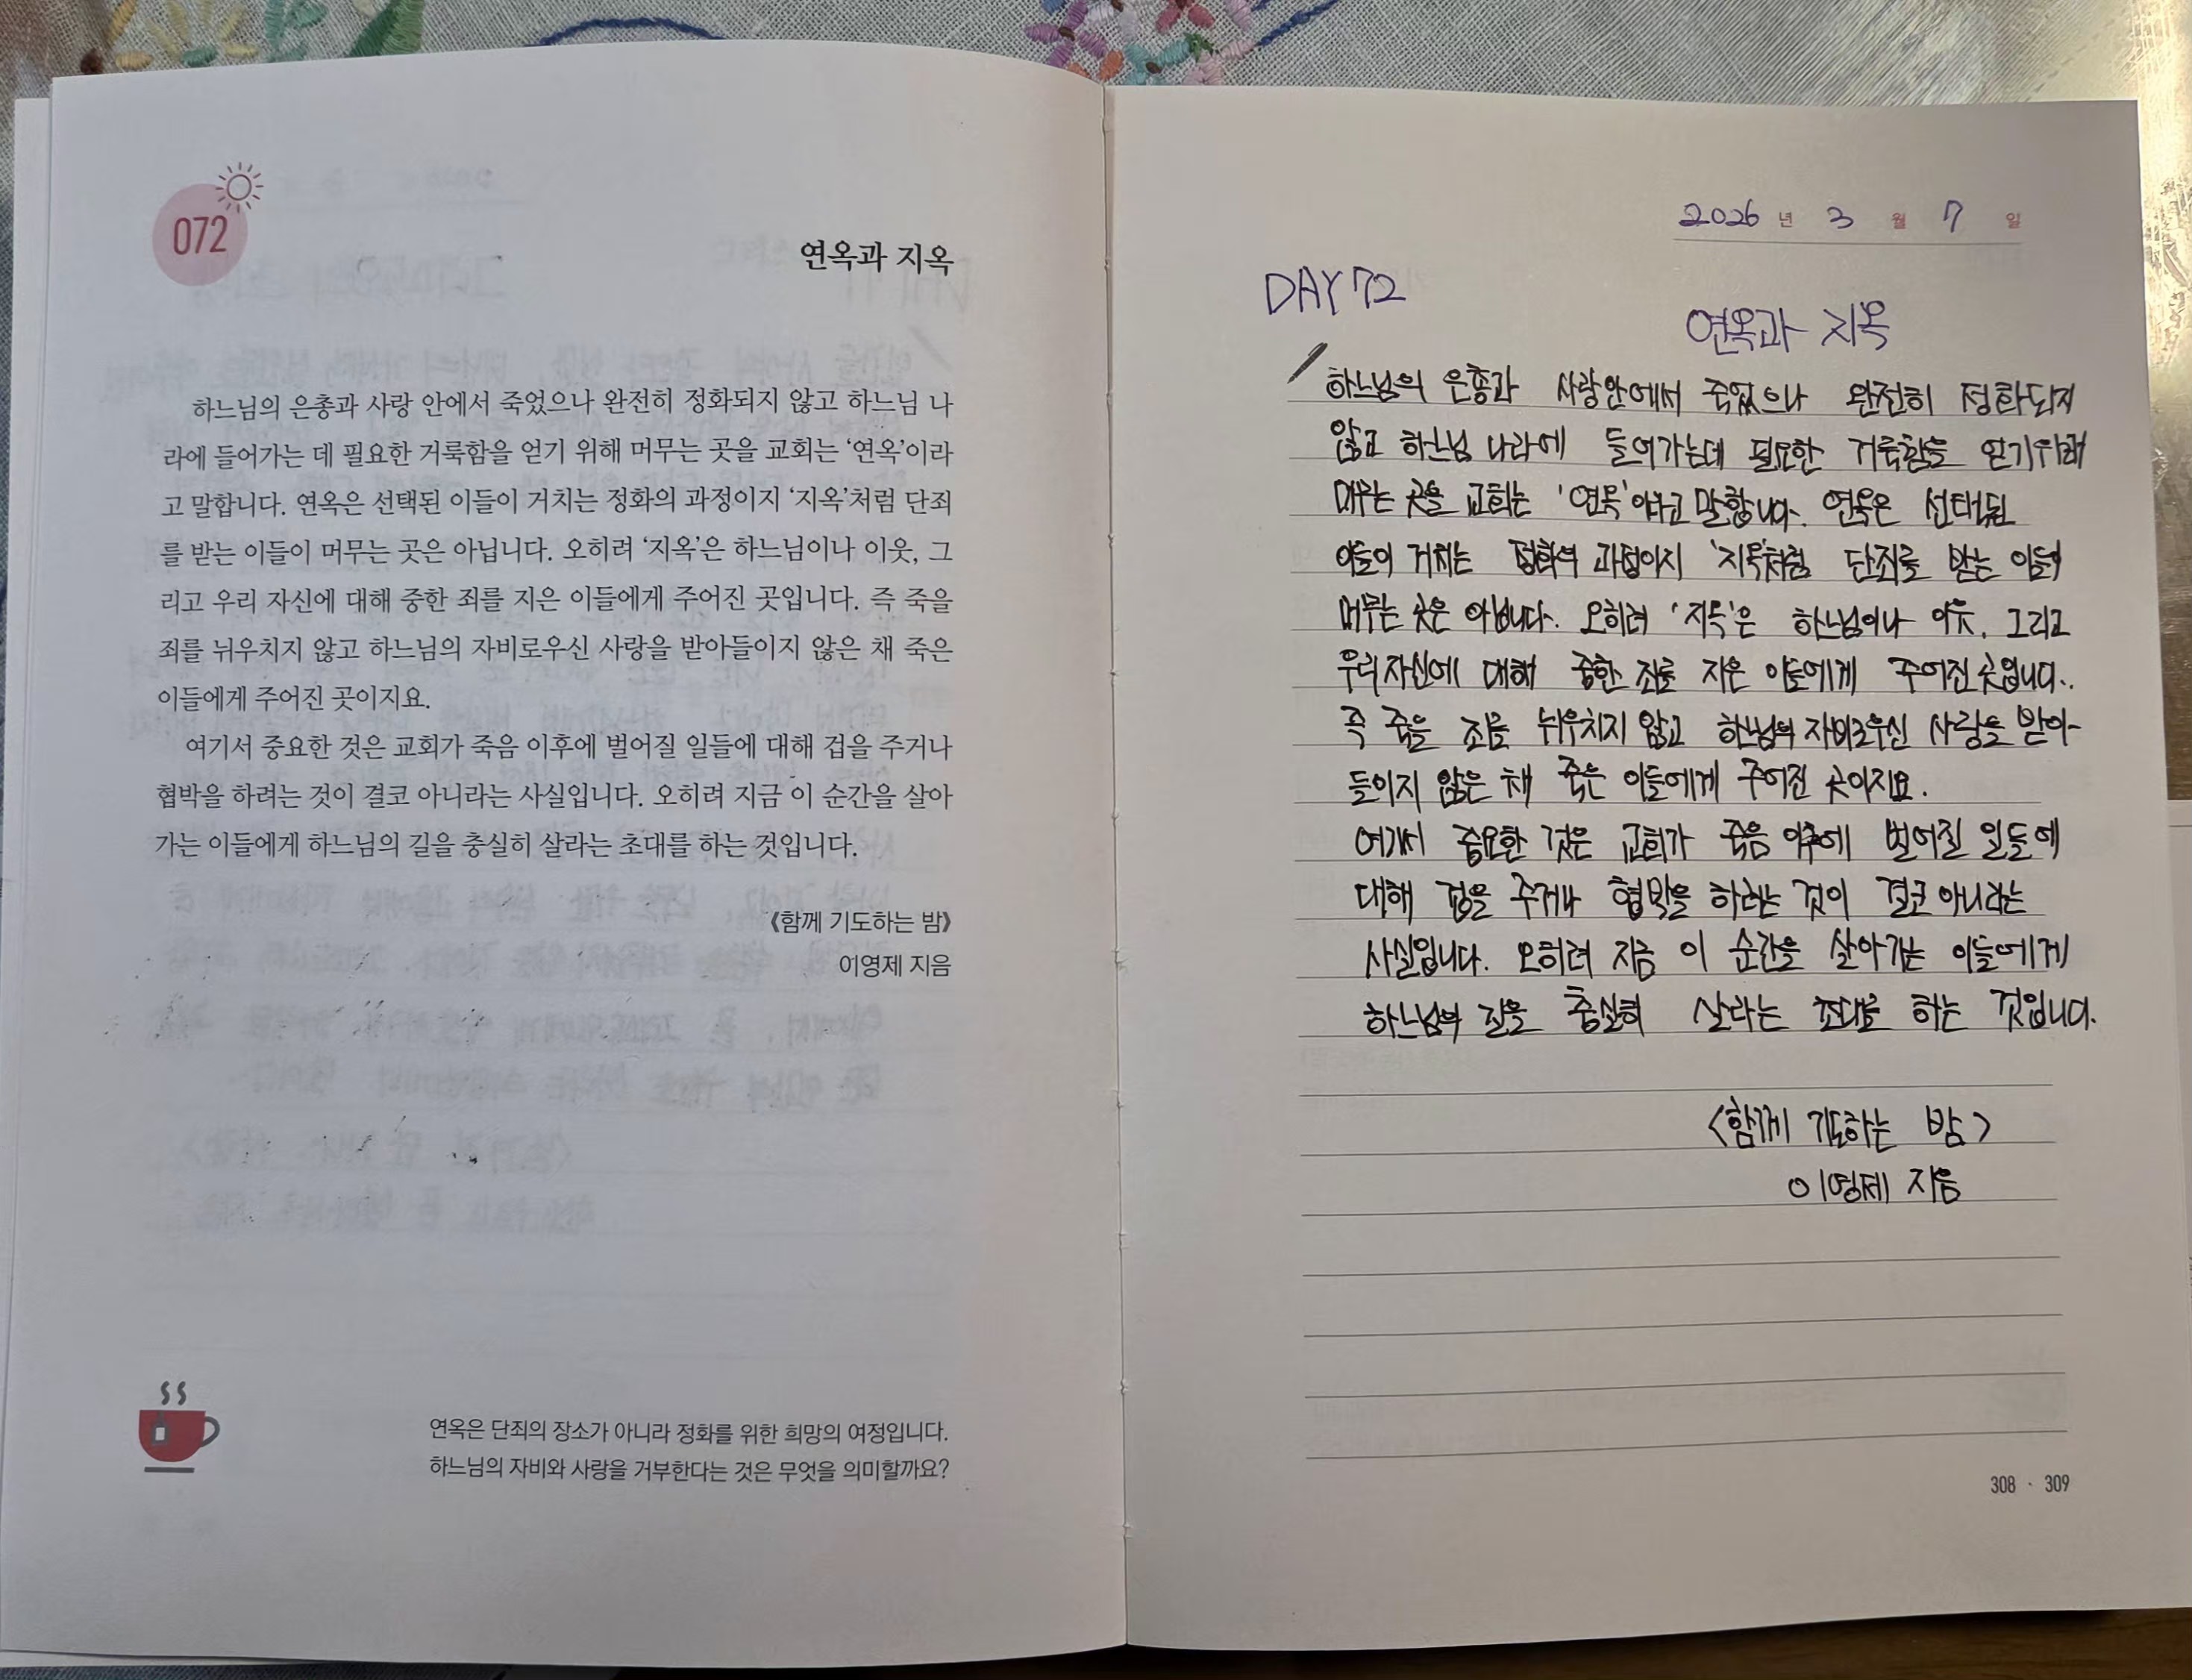 072
연옥과 지옥
하느님의 은총과 사랑 안에서 죽었으나 완전히 정화되지 않고 하느님 나
라에 들어가는 데 필요한 거룩함을 얻기 위해 머무는 곳을 교회는 ‘연옥’이라
고 말합니다. 연옥은 선택된 이들이 거치는 정화의 과정이지 ‘지옥’처럼 단죄
를 받는 이들이 머무는 곳은 아닙니다. 오히려 ‘지옥’은 하느님이나 이웃, 그
리고 우리 자신에 대해 중한 죄를 지은 이들에게 주어진 곳입니다. 즉 죽을
죄를 뉘우치지 않고 하느님의 자비로우신 사랑을 받아들이지 않은 채 죽은
이들에게 주어진 곳이지요.
여기서 중요한 것은 교회가 죽음 이후에 벌어질 일들에 대해 겁을 주거나
협박을 하려는 것이 결코 아니라는 사실입니다. 오히려 지금 이 순간을 살아
가는 이들에게 하느님의 길을 충실히 살라는 초대를 하는 것입니다.
《함께 기도하는 밤》
이영제 지음
연옥은 단죄의 장소가 아니라 정화를 위한 희망의 여정입니다.
하느님의 자비와 사랑을 거부한다는 것은 무엇을 의미할까요?
2026 년 3 월 7 일
DAY 72
연옥과 지옥
하느님의 은총과 사랑안에서 죽었으나 완전히 정화되지
않고 하느님 나라에 들어가는데 필요한 거룩함을 얻기위해
머무는 곳을 교회는 ‘연옥’이라고 말합니다. 연옥은 선택된
이들이 거치는 정화의 과정이지 ‘지옥’처럼 단죄를 받는 이들이
머무는 곳은 아닙니다. 오히려 ‘지옥’은 하느님이나 이웃, 그리고
우리 자신에 대해 중한 죄를 지은 이들에게 주어진 곳입니다.
즉 죽을 죄를 뉘우치지 않고 하느님의 자비로우신 사랑을 받아
들이지 않은 채 죽은 이들에게 주어진 곳이지요.
여기서 중요한 것은 교회가 죽음 이후에 벌어질 일들에
대해 겁을 주거나 협박을 하려는 것이 결코 아니라는
사실입니다. 오히려 지금 이 순간을 살아가는 이들에게
하느님의 길을 충실히 살라는 초대를 하는 것입니다.
<함께 기도하는 밤>
이영제 지음
308 · 309